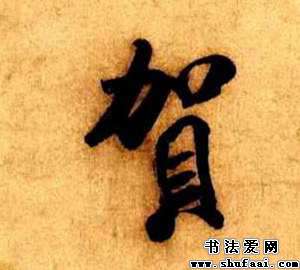 賀
书法爱网
www.shufaai.com